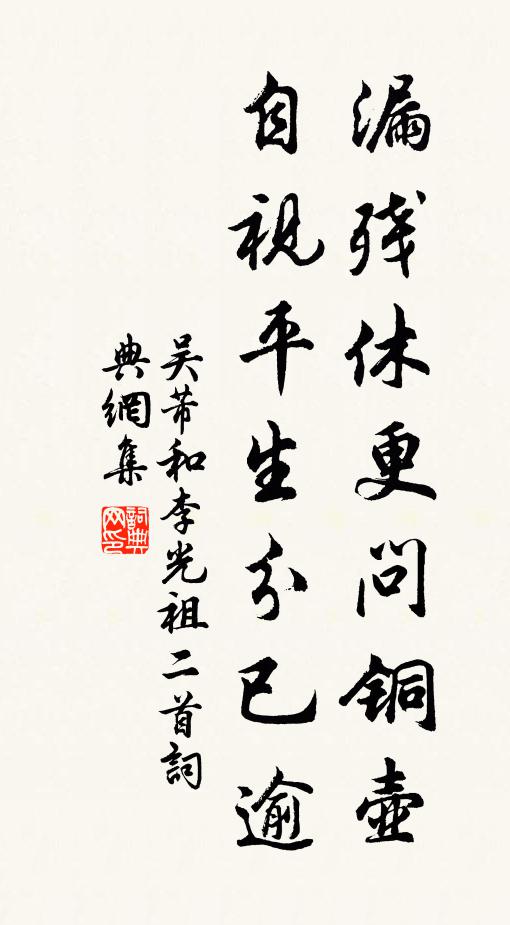 漏残休更问铜壶
自视平生分已逾
吴芾和李光祖二首詞
典網集
詞典网印